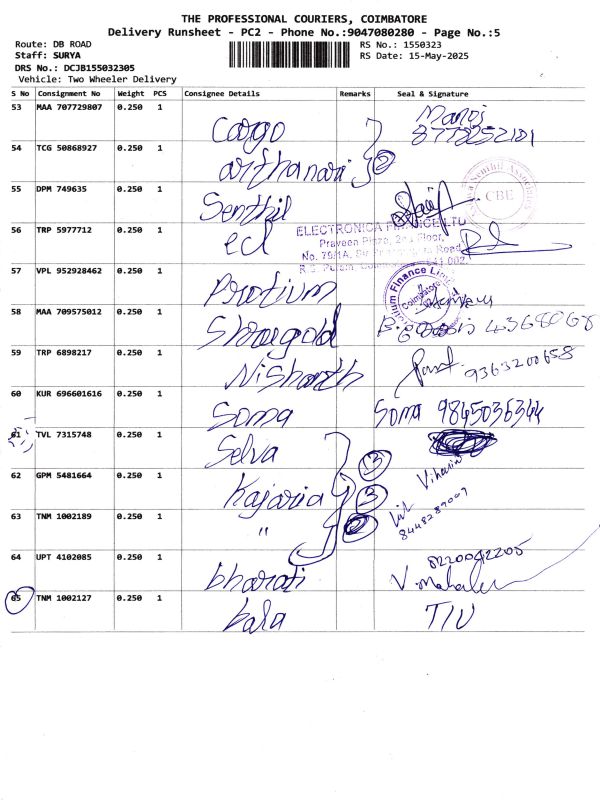 THE PROFESSIONAL COURIERS, COIMBATORE
Delivery Runsheet - PC2 - Phone No.:9047080280 - Page No.:5
Route: DB ROAD
RS No.: 1550323
Staff: SURYA
RS Date: 15-May-2025
DRS No.: DCJB155032305
Vehicle: Two Wheeler Delivery
S No Consignment No Weight PCS Consignee Details Remarks Seal & Signature
53 MAA 707729807 0.250 1 Cargo Manoj
54 TCG 50868927 0.250 1 arthanari 2
55 DPM 749635 0.250 1 Senthil
CBE
56 TRP 5977712 0.250 1 ecl
ELECTRONICA FINANCE LTD
Praveen Plaza, 2nd Floor,
57 VPL 952928462 0.250 1 Protium
58 MAA 709575012 0.250 1 Showgold
59 TRP 6898217 0.250 1 Nishanth 9363200658
60 KUR 696601616 0.250 1 Soma Soma 9845036344
61 TVL 7315748 0.250 1 Selva 3
62 GPM 5481664 0.250 1 Kajaria 3
63 TNM 1002189 0.250 1 " 8448289009
64 UPT 4102085 0.250 1 bharati 8220042205
65 TNM 1002127 0.250 1 bala